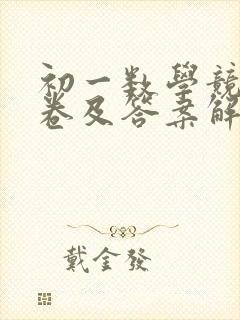 初一数學競
卷及答案解
戴金發